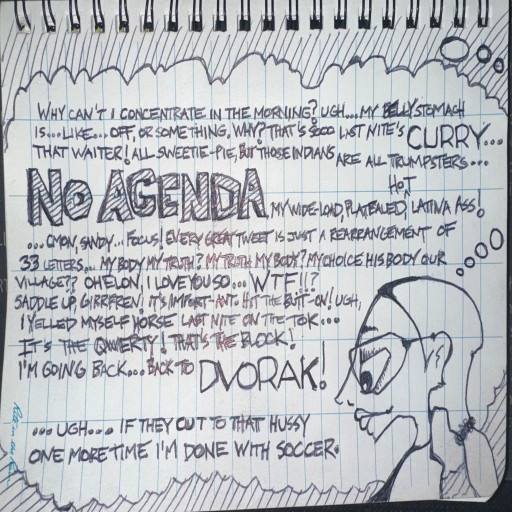 WHY CAN'T I CONCENTRATE IN THE MORNING? UGH...MY BELLY STOMACH
IS...LIKE...OFF, OR SOMETHING, WHY? THAT'S SOOO LAST NITE'S CURRY...
THAT WAITER! ALL SWEETIE-PIE, BUT THOSE INDIANS ARE ALL TRUMPSTERS...
NO AGENDA MY WIDE-LOAD, PLATEAUED, HOT LATINA ASS!
...CMON, SANDY... FOCUS! EVERY GREAT TWEET IS JUST A REARRANGEMENT OF
33 LETTERS... MY BODY MY TRUTH? MY TRUTH MY BODY? MY CHOICE HIS BODY OUR
VILLAGE?? OH ELON, I LOVE YOU SO... WTF!!?
SADDLE UP GIRRFREN! IT'S IMPORT-ANT. HIT THE BUTT-ON! UGH,
I YELLED MYSELF HORSE LAST NITE ON THE TOK...
IT'S THE QWERTY! THAT'S THE BLOCK!
I'M GOING BACK... BACK TO DVORAK!
...UGH... IF THEY CUT TO THAT HUSSY
ONE MORE TIME I'M DONE WITH SOCCER.